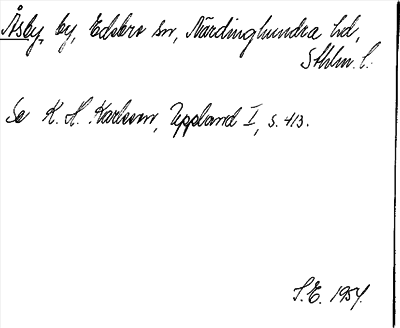 Åsby, by, Edsbro sn, Närdinghundra hd,
Sthlm. l.
Se K. H. Karlsson, Uppland I, s. 413.
S.E. 1954.